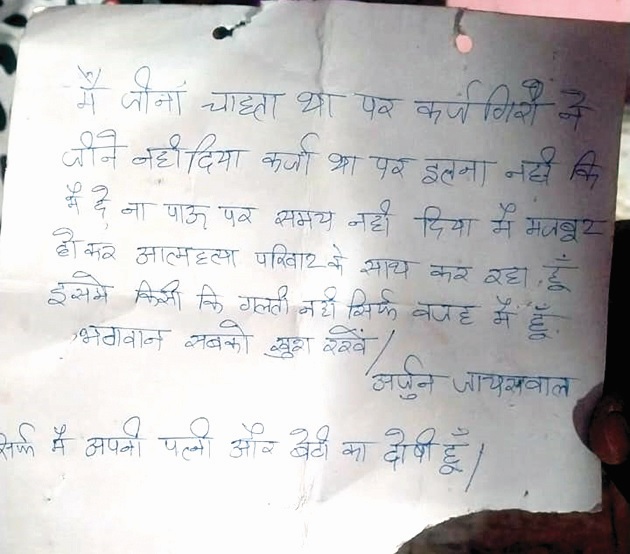 मै जीना चाहता था पर कर्ज गिरो ने
जीने नही दिया कर्जा था पर इतना नही कि
मै दे ना पाऊ पर समय नही दिया मै मजबूर
हो कर आत्महत्या परिवार के साथ कर रहा हूँ
इसमे किसी कि गलती नही सिर्फ वजह मै हूँ
भगवान सबको खुश रखें/
अर्जुन जायसवाल
सिर्फ मै अपनी पत्नी और बेटी का दोषी हूँ/